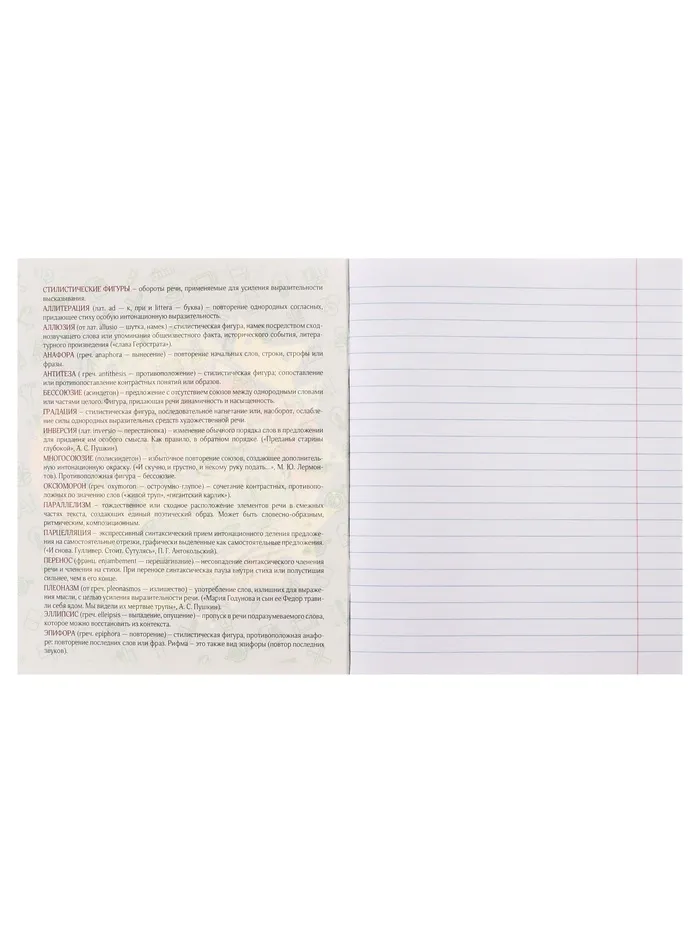 СТИЛИСТИЧЕСКИЕ ФИГУРЫ – обороты речи, применяемые для усиления выразительности
высказывания.
АЛЛИТЕРАЦИЯ (лат. ad — к, при и littera — буква) – повторение однородных согласных,
придающее стиху особую интонационную выразительность.
АЛЛЮЗИЯ (от лат. allusio – шутка, намек) – стилистическая фигура, намек посредством сход-
нозвучащего слова или упоминания общеизвестного факта, исторического события, литера-
турного произведения («слава Герострата»).
АНАФОРА (греч. anaphora — вынесение) – повторение начальных слов, строки, строфы или
фразы.
АНТИТЕЗА ( греч. antithesis – противоположение) – стилистическая фигура; сопоставление
или противопоставление контрастных понятий или образов.
БЕССОЮЗИЕ (асиндетон) – предложение с отсутствием союзов между однородными словами
или частями целого. Фигура, придающая речи динамичность и насыщенность.
ГРАДАЦИЯ — стилистическая фигура, последовательное нагнетание или, наоборот, ослабле-
ние силы однородных выразительных средств художественной речи.
ИНВЕРСИЯ (лат. inversio – перестановка) – изменение обычного порядка слов в предложении
для придания им особого смысла. Как правило, в обратном порядке. («Преданья старины
глубокой», А. С. Пушкин).
МНОГОСОЮЗИЕ (полисиндетон) – избыточное повторение союзов, создающее дополнитель-
ную интонационную окраску. («И скучно, и грустно, и некому руку подать...», М. Ю. Лермон-
тов). Противоположная фигура – бессоюзие.
ОКСЮМОРОН (греч. oxymoron – остроумно-глупое) – сочетание контрастных, противопо-
ложных по значению слов («живой труп», «гигантский карлик»).
ПАРАЛЛЕЛИЗМ — тождественное или сходное расположение элементов речи в смежных
частях текста, создающих единый поэтический образ. Может быть словесно-образным,
ритмическим, композиционным.
ПАРЦЕЛЛЯЦИЯ – экспрессивный синтаксический прием интонационного деления предложе-
ния на самостоятельные отрезки, графически выделенные как самостоятельные предложения.
(«И снова. Гулливер. Стоит. Сутулясь», П. Г. Антокольский).
ПЕРЕНОС (франц. enjambement – перешагивание) – несовпадение синтаксического членения
речи и членения на стихи. При переносе синтаксическая пауза внутри стиха или полустишия
сильнее, чем в его конце.
ПЛЕОНАЗМ (от греч. pleonasmos – излишество) – употребление слов, излишних для выраже-
ния мысли, с целью усиления выразительности речи. («Мария Годунова и сын ее Федор трави-
ли себя ядом. Мы видели их мертвые трупы», А. С. Пушкин).
ЭЛЛИПСИС (греч. elleipsis – выпадение, опущение) – пропуск в речи подразумеваемого слова,
которое можно восстановить из контекста.
ЭПИФОРА (греч. epiphora – повторение) – стилистическая фигура, противоположная анафо-
ре: повторение последних слов или фраз. Рифма – это также вид эпифоры (повтор последних
звуков).